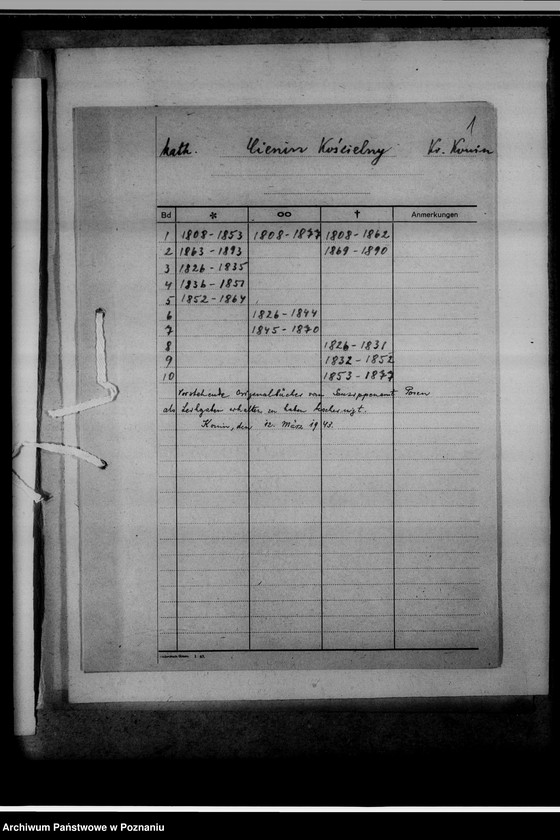 1
kath. Cienin Kościelny Kr. Konin
Bd * ∞ † Anmerkungen
1 1808-1853 1808-1877 1808-1862
2 1863-1893 1869-1890
3 1826-1835
4 1836-1851
5 1852-1864
6 1826-1844
7 1845-1870
8 1826-1831
9 1832-1852
10 1853-1877
Vorstehende Originalbücher vom Gausippenamt Posen
als Leihgaben erhalten zu haben
Konin, den 12. März 1943.
Archiwum Państwowe w Poznaniu